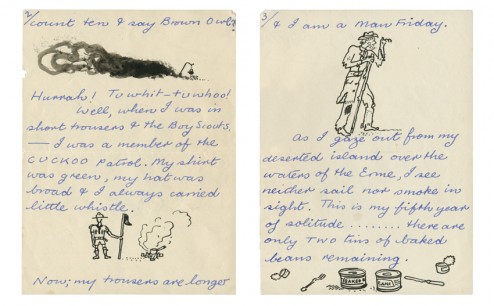 2/
count ten & say Brown Owl?
Hurrah! Tu whit-tu whoo!
Well, when I was in
short trousers & the Boy Scouts.
— I was a member of the
CUCKOO Patrol. My shirt
was green, my hat was
broad & I always carried
little whistle.
Now; my trousers are longer
3/
& I am a Man Friday.
As I gaze out from my
deserted island over the
waters of the Erme, I see
neither sail nor smoke in
sight. This is my fifth year
of solitude ........ there are
only TWO tins of baked
beans remaining.
BAKED